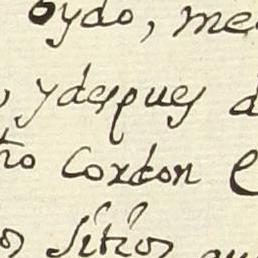 oydo, me
, ydespues d
ho Cordon
os sitios